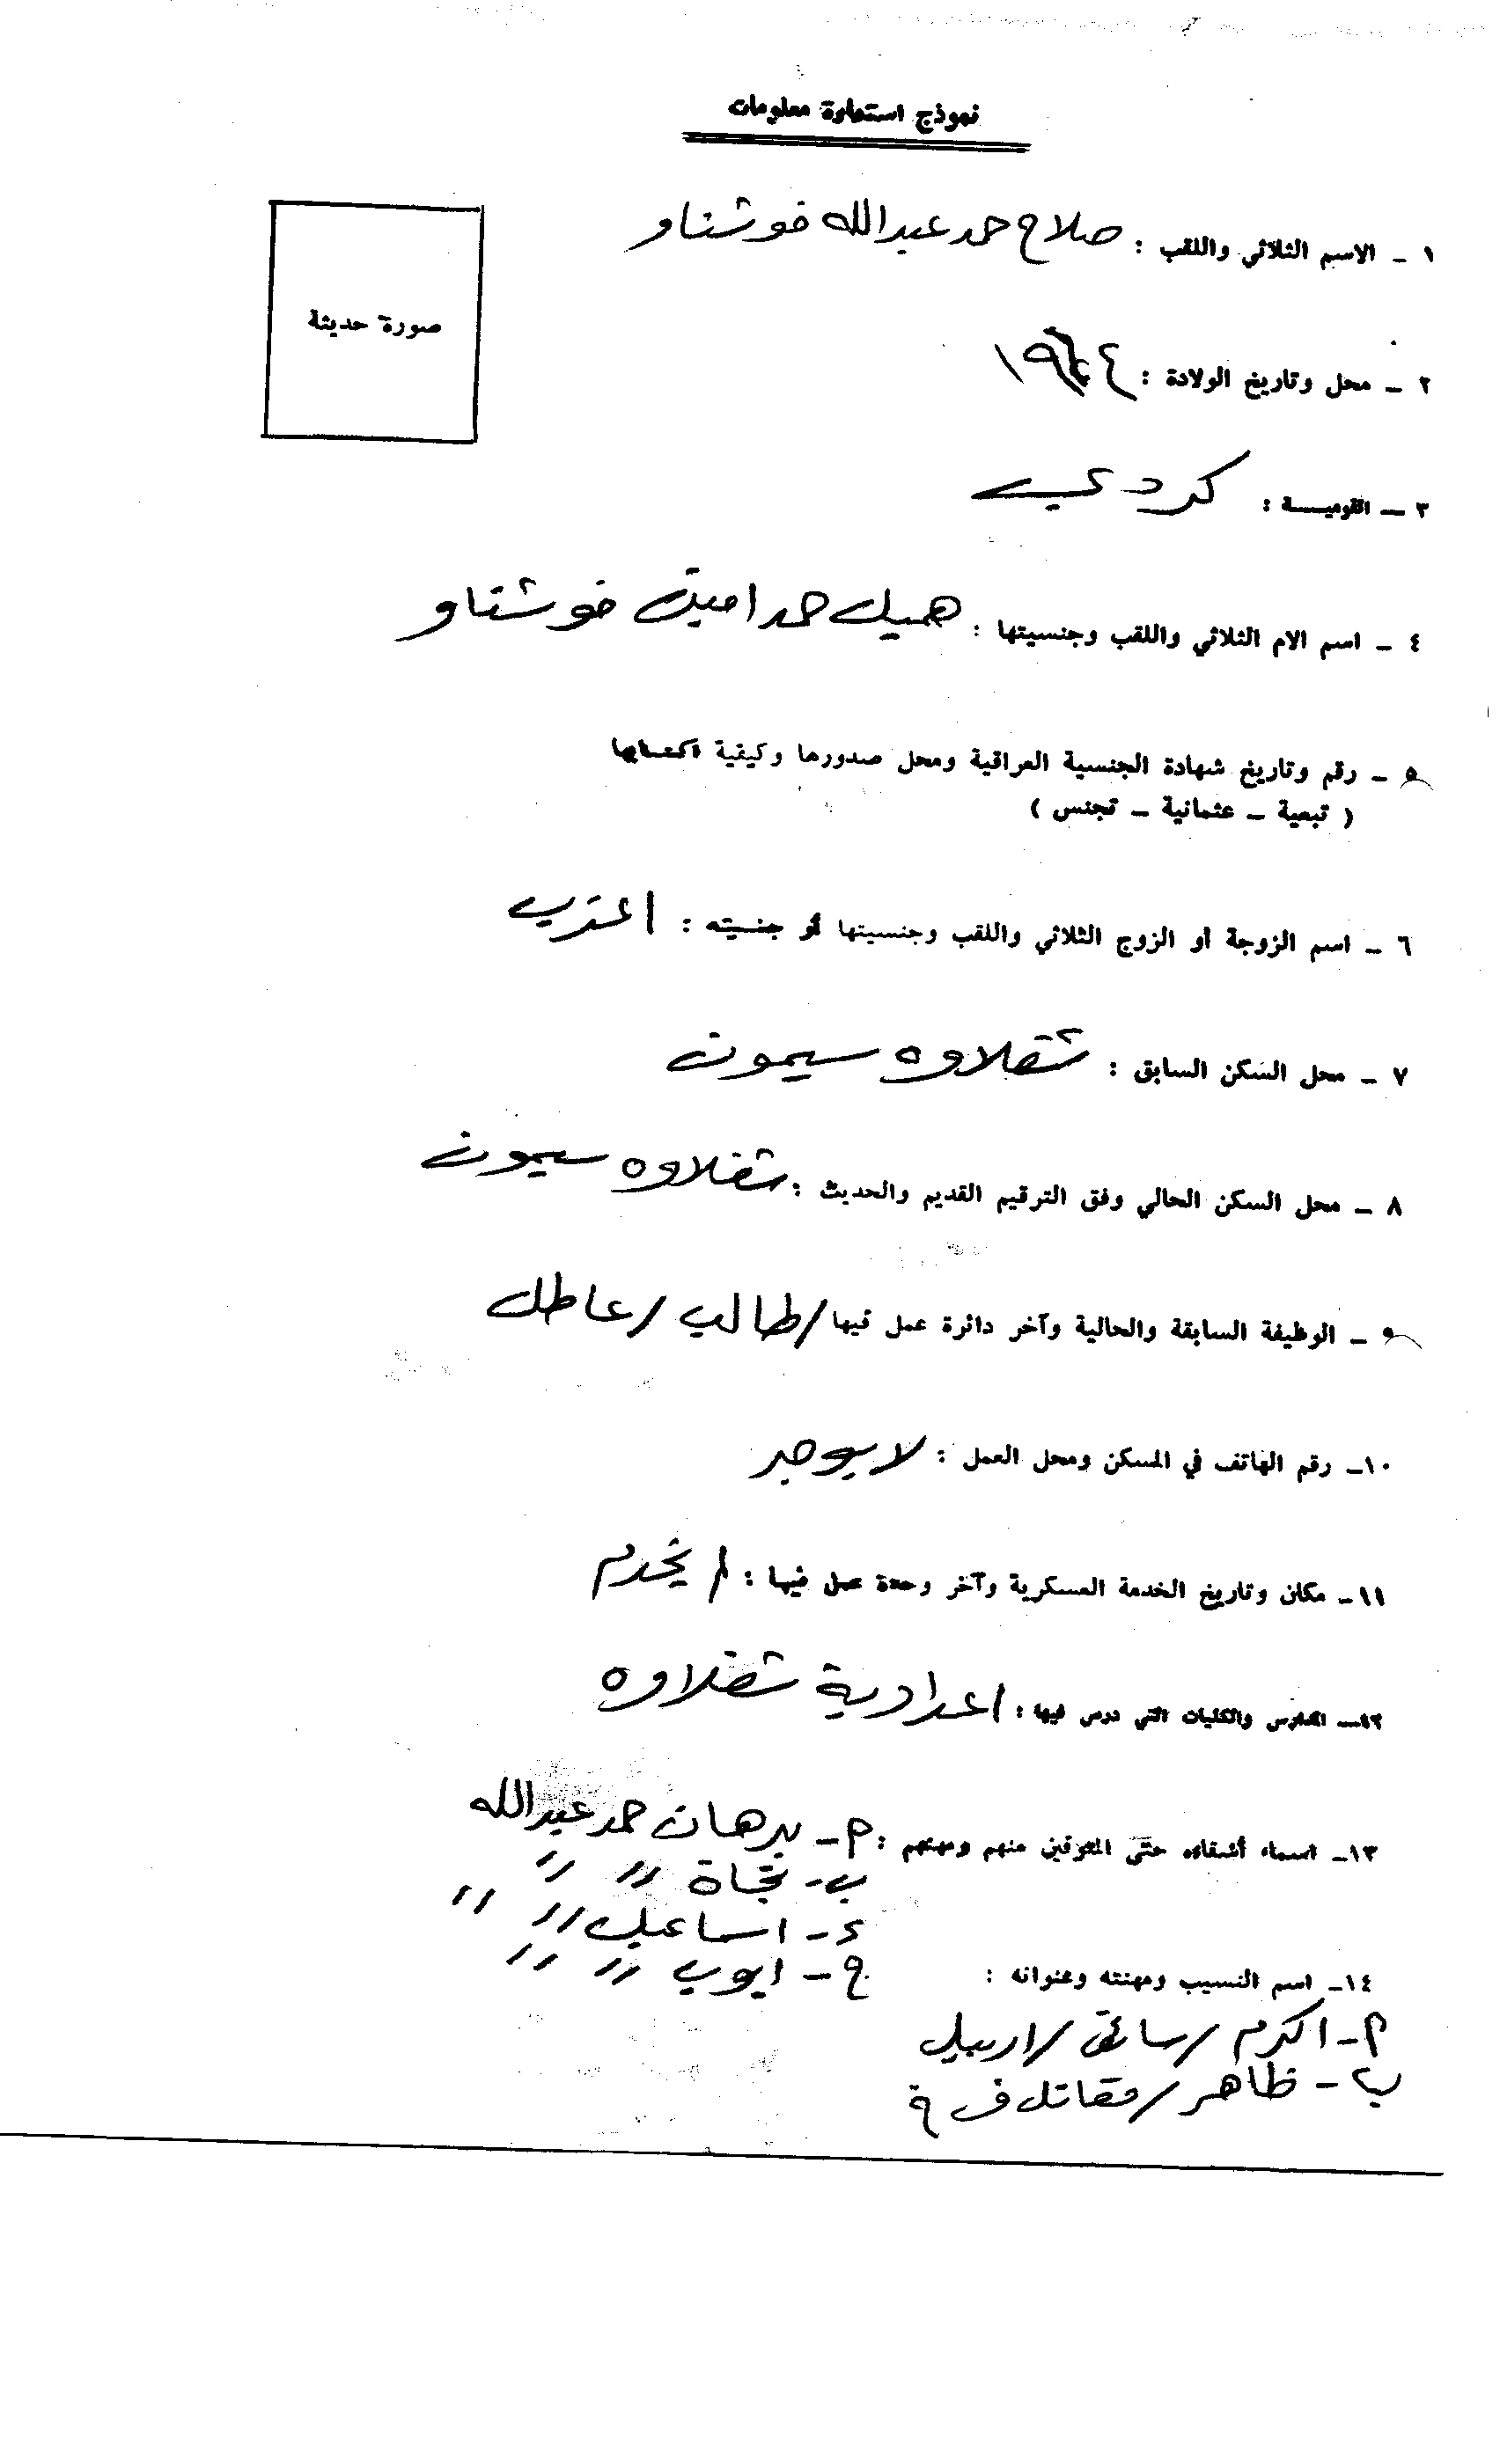 نموذج استمارة معلومات
صورة حديثة
١ - الاسم الثلاثي واللقب : صلاح حمد عبدالله خوشناو
٢ - محل وتاريخ الولادة :
٣ - القوميـــة : كردي
٤ - اسم الام الثلاثي واللقب وجنسيتها : حمد امين خوشناو
٥ - رقم وتاريخ شهادة الجنسية العراقية ومحل صدورها وكيفية اكتسابها
( تبعية - عثمانية - تجنس )
٦ - اسم الزوجة أو الزوج الثلاثي واللقب وجنسيتها أو جنسيته : اعزب
٧ - محل السكن السابق : شقلاوه سيمون
٨ - محل السكن الحالي وفق الترقيم القديم والحديث : شقلاوه سيمون
٩ - الوظيفة السابقة والحالية وآخر دائرة عمل فيها / طالب / عاطل
١٠- رقم الهاتف في المسكن ومحل العمل : لا يوجد
١١- مكان وتاريخ الخدمة العسكرية وآخر وحدة عمل فيها : لم يخدم
١٢- المدارس والكليات التي درس فيها : اعدادية شقلاوه
١٣- اسماء أشقاءه حتى المتوفين منهم ومهنهم : أ- برهان حمد عبدالله
ب- نجاة 〃 〃
د- اسماعيل 〃 〃 〃
ج- ايوب 〃 〃
١٤- اسم النسيب ومهنته وعنوانه :
أ- اكرم / سائق / اربيل
ب- ظاهر / مقاتل ف ق